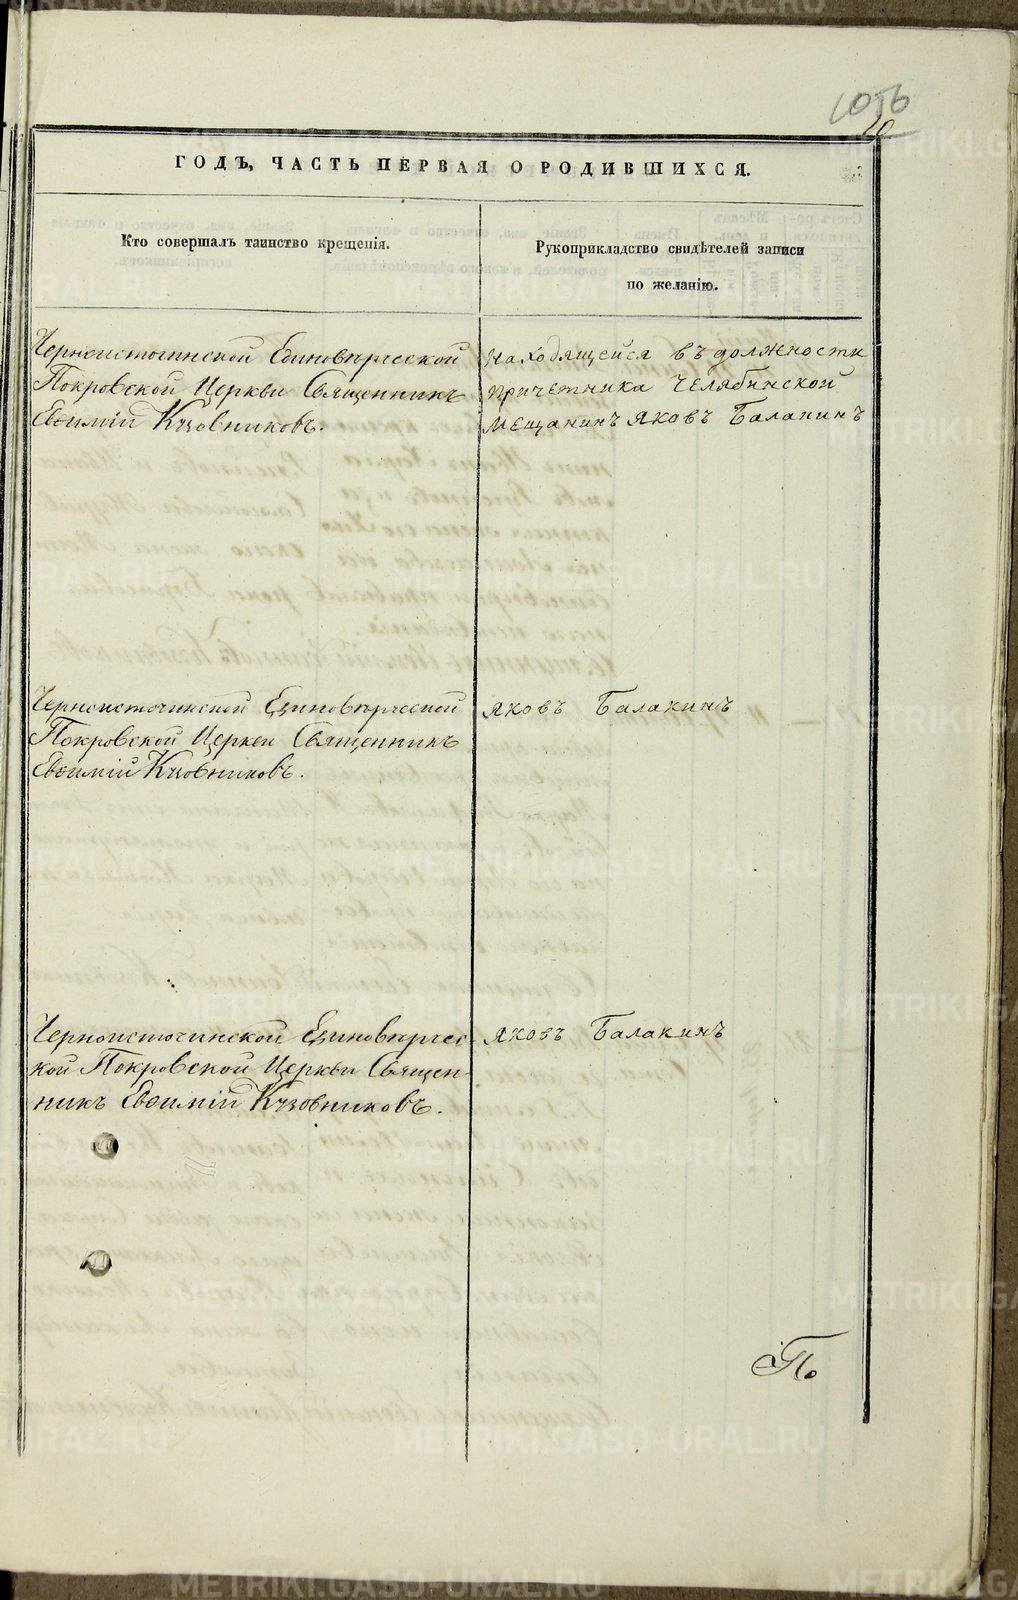 1056
20
ГОДЪ, ЧАСТЬ ПЕРВАЯ О РОДИВШИХСЯ.
Кто совершалъ таинство крещенія.
Рукоприкладство свидѣтелей записи
по желанію.
Черноисточинской Единовѣрческой
Покровской Церкви Священникъ
Евѳимій Кузовниковъ.
находящейся въ должности
причетника Челябинской
мещанинъ Яковъ Балакинъ
Черноисточинской Единовѣрческой
Покровской Церкви Священникъ
Евѳимій Кузовниковъ.
Яковъ Балакинъ
Черноисточинской Единовѣрчес-
кой Покровской Церкви Священ-
никъ Евѳимій Кузовниковъ.
Яковъ Балакинъ
По
METRIKI.GASO-URAL.RU